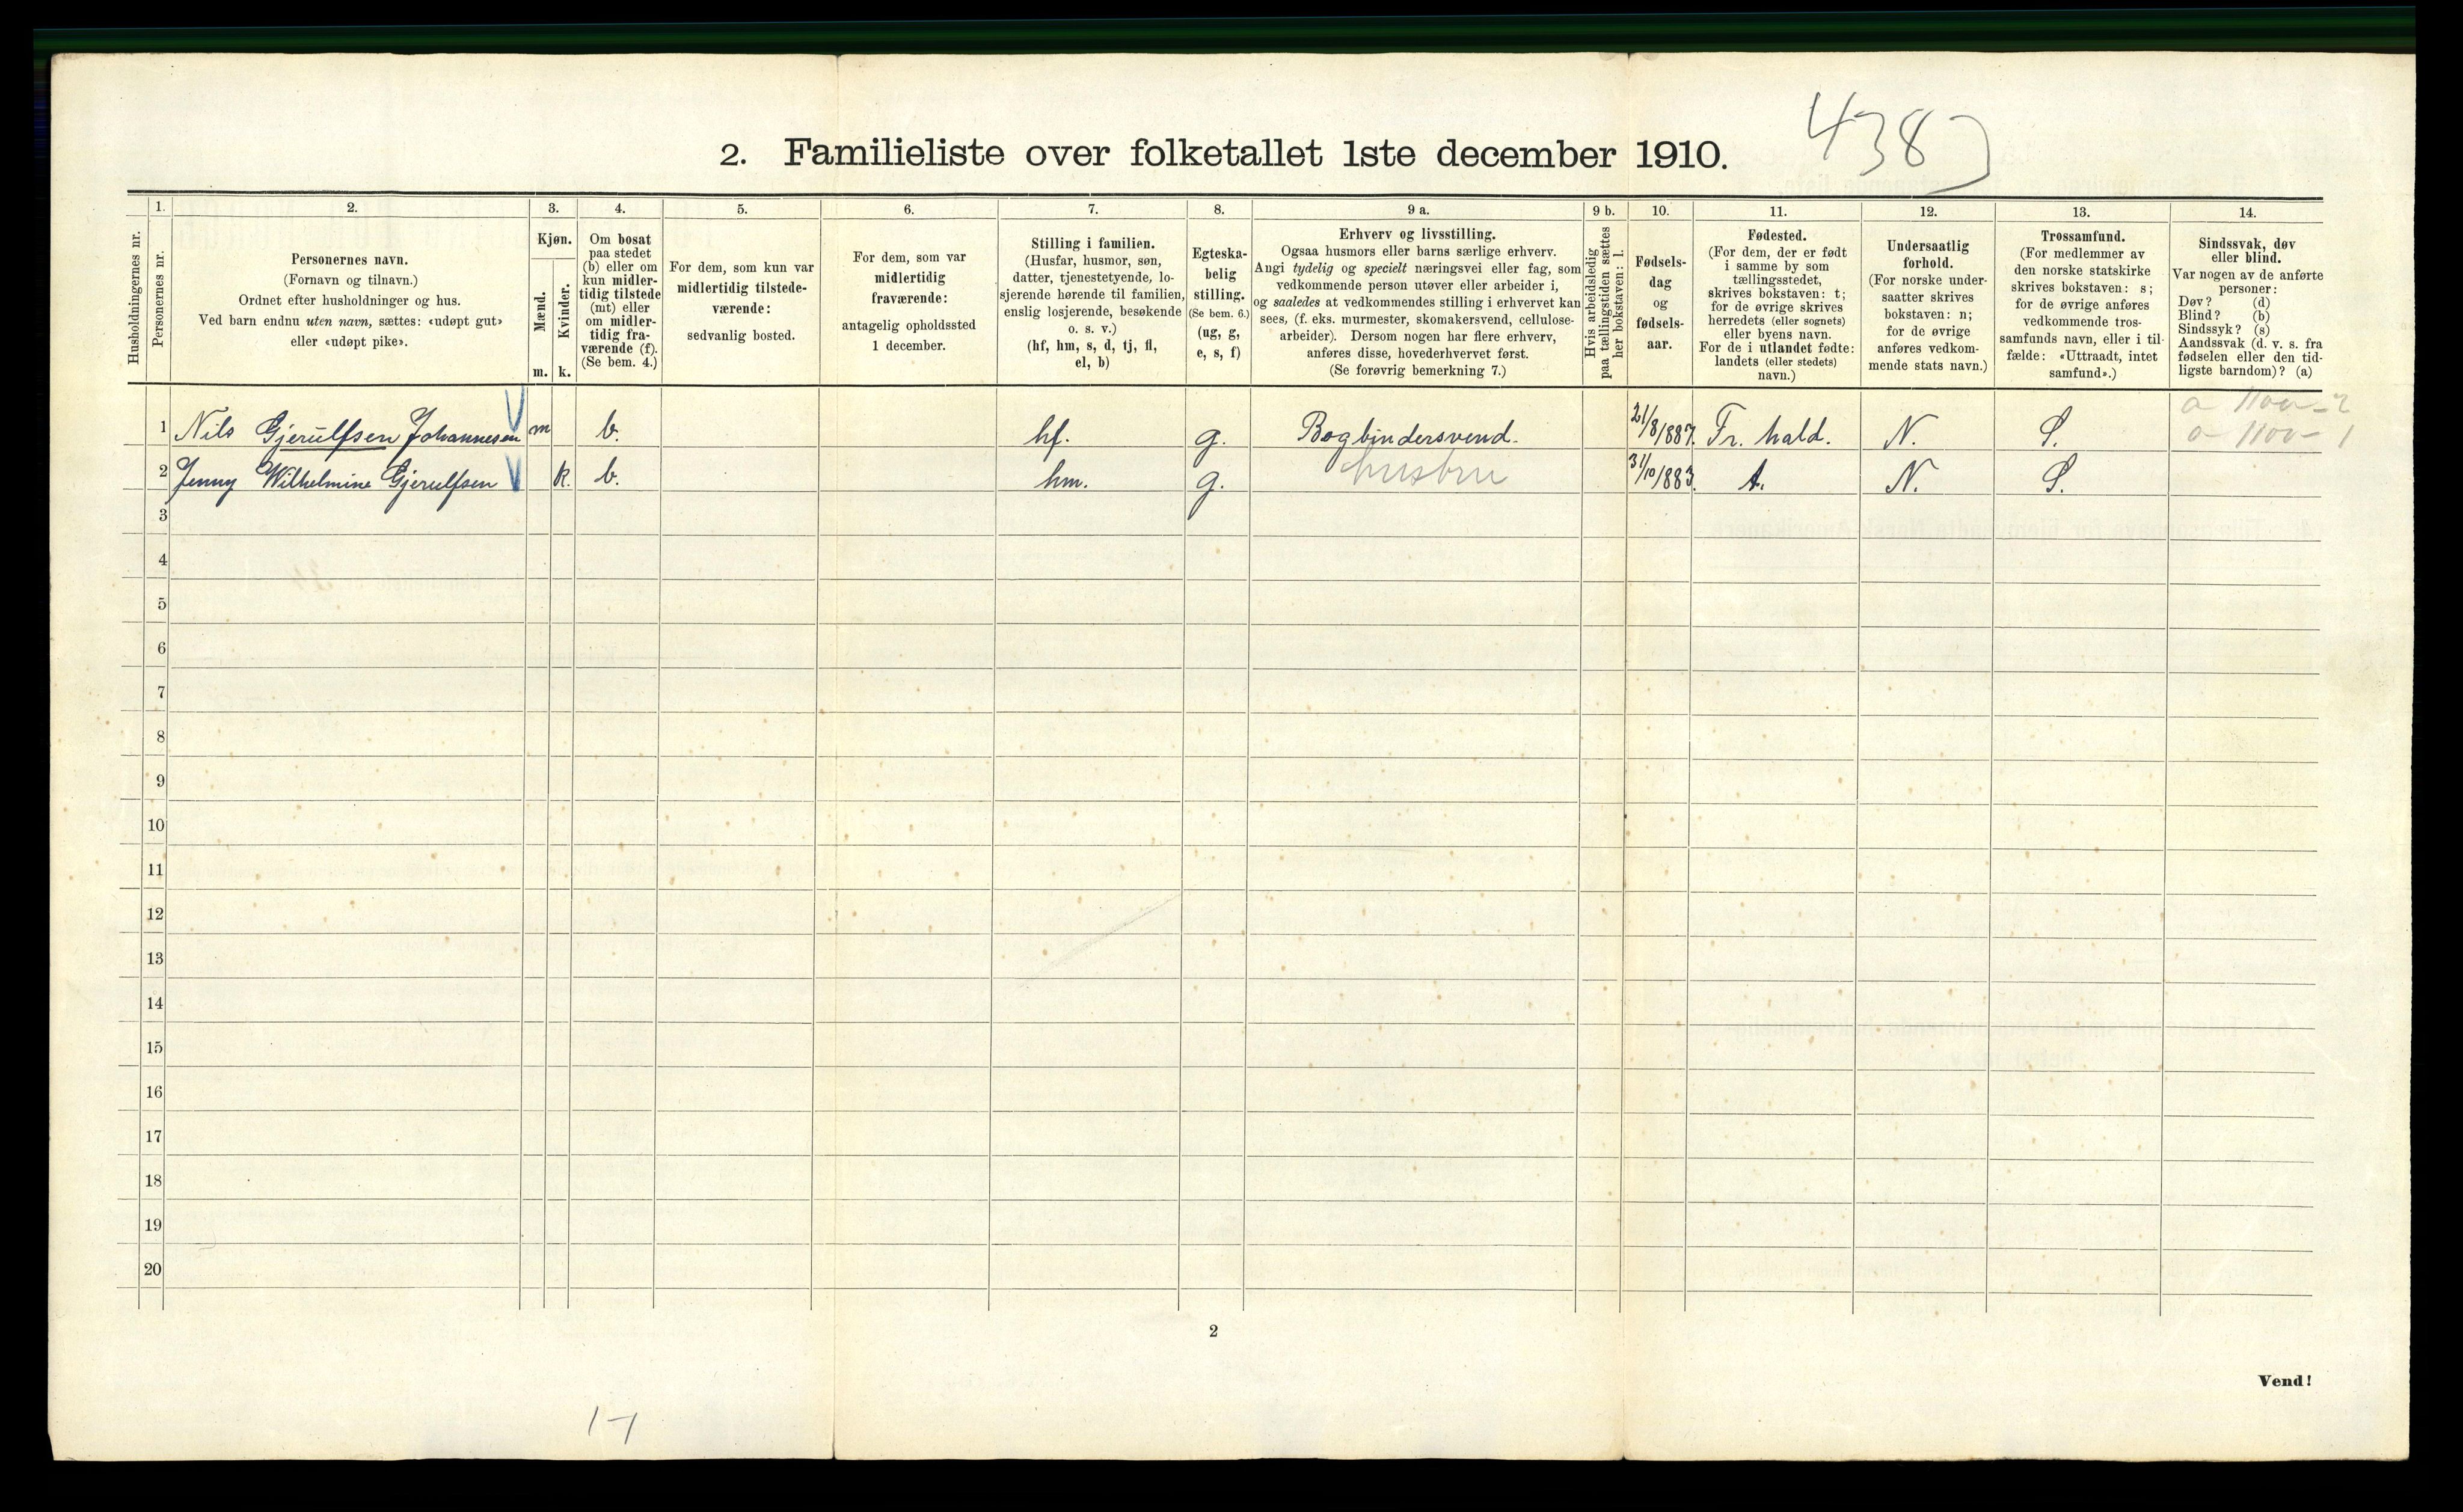 4383
2. Familieliste over folketallet 1ste december 1910.
Husholdningernes nr.
1.
Personernes nr.
2.
Personernes navn.
(Fornavn og tilnavn.)
Ordnet efter husholdninger og hus.
Ved barn endnu uten navn, sættes: «udøpt gut»
eller «udøpt pike».
3.
Kjøn.
Mænd.
m.
Kvinder.
k.
4.
Om bosat
paa stedet
(b) eller om
kun midler-
tidig tilstede
(mt) eller
om midler-
tidig fra-
værende (f).
(Se bem. 4.)
5.
For dem, som kun var
midlertidig tilstede-
værende:
sedvanlig bosted.
6.
For dem, som var
midlertidig
fraværende:
antagelig opholdssted
1 december.
7.
Stilling i familien.
(Husfar, husmor, søn,
datter, tjenestetyende, lo-
sjerende hørende til familien,
enslig losjerende, besøkende
o. s. v.)
(hf, hm, s, d, tj, fl,
el, b)
8.
Egteska-
belig
stilling.
(Se bem. 6.)
(ug, g,
e, s, f)
9 a.
Erhverv og livsstilling.
Ogsaa husmors eller barns særlige erhverv.
Angi tydelig og specielt næringsvei eller fag, som
vedkommende person utøver eller arbeider i,
og saaledes at vedkommendes stilling i erhvervet kan
sees, (f. eks. murmester, skomakersvend, cellulose-
arbeider). Dersom nogen har flere erhverv,
anføres disse, hovederhvervet først.
(Se forøvrig bemerkning 7.)
9 b.
Hvis arbeidsledig
paa tællingstiden sættes
her bokstaven: l.
10.
Fødsels-
dag
og
fødsels-
aar.
11.
Fødested.
(For dem, der er født
i samme by som
tællingsstedet,
skrives bokstaven: t;
for de øvrige skrives
herredets (eller sognets)
eller byens navn.
For de i utlandet fødte:
landets (eller stedets)
navn.)
12.
Undersaatlig
forhold.
(For norske under-
saatter skrives
bokstaven: n;
for de øvrige
anføres vedkom-
mende stats navn.)
13.
Trossamfund.
(For medlemmer av
den norske statskirke
skrives bokstaven: s;
for de øvrige anføres
vedkommende tros-
samfunds navn, eller i til-
fælde: «Uttraadt, intet
samfund».)
14.
Sindssvak, døv
eller blind.
Var nogen av de anførte
personer:
Døv? (d)
Blind? (b)
Sindssyk? (s)
Aandssvak (d. v. s. fra
fødselen eller den tid-
ligste barndom)? (a)
1 Nils Gjerulfsen Johannesen m b. hf. g. Bogbindersvend. 21/8/887. Fr. hald. N. S.
2 Jenny Wilhelmine Gjerulfsen k. b. hm. g. husbru 31/10/883. t. N. S.
3
4
5
6
7
8
9
10
11
12
13
14
15
16
17
18
19
20
2
Vend!
17